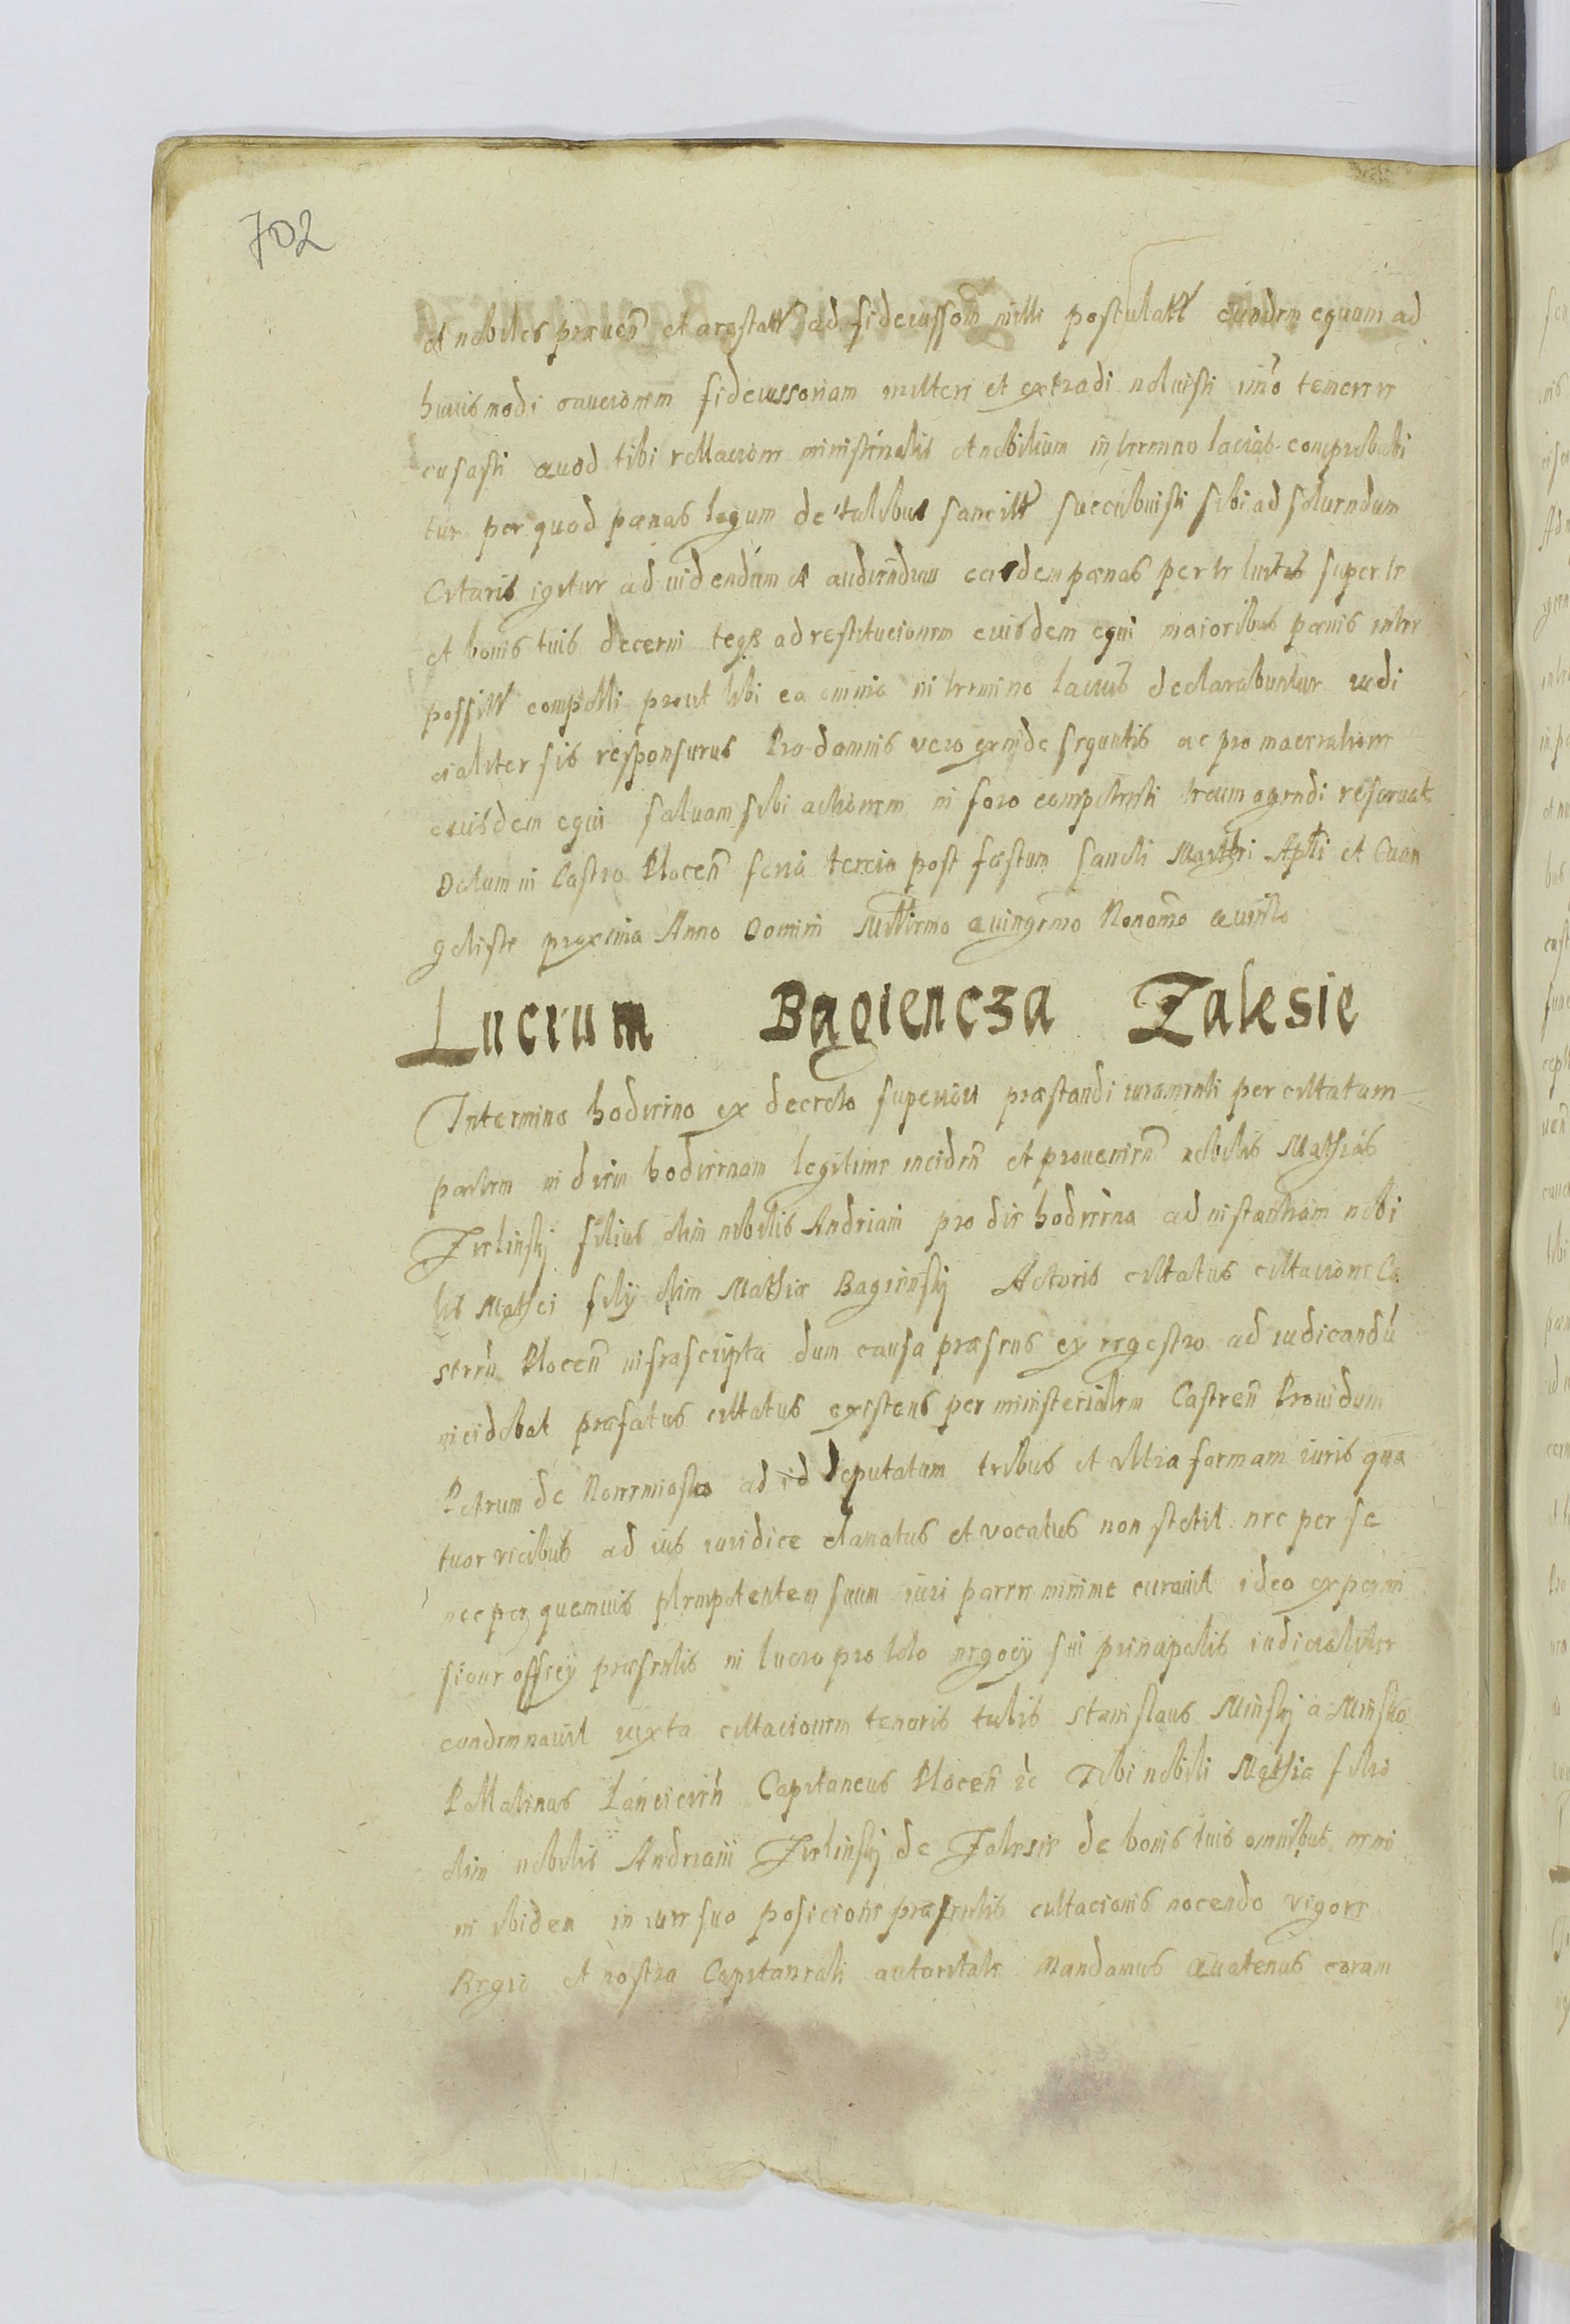 702
et nobiles præuen̄ et arestatꝶ ad fideiussom̄ milli postulatꝶ eundem equum ad
huiusmodi caucionem fideiussoriam mittere et extradi noluisti imo temere re
cusasti quod tibi rellacione ministerialis et nobilium in termino lacius comprobabi
tur per quod pœnas legum de talibus sancitꝶ succubuisti sibi ad soluendum
Citaris igitur ad uidendum et audiendum easdem pœnas per te luitas super te
et bonis tuis decerni teq3 ad restitucionem eiusdem equi maioribus pœnis inter
possitꝶ compelli prout tibi ea omnia in termino lacius declarabuntur iudi
cialiter sis responsurus Pro damnis vero exinde sequutis ac pro maceratione
eiusdem equi saluam sibi actionem in foro competenti tecum agendi reseruat
Datum in Castro Plocen̄ feria tercia post festum Sancti Matthei Apłi et Euan
geliste proxima Anno Domini Millemo Quingemo Nonomo Quinto
Lucrum Bagiencza Zalesie
In termino hodierno ex decreto superiori præstandi iuramenti per cittatum
partem in diem hodiernam legitime inciden̄ et prouenien̄ nobilis Mathias
Zielinskj filius olim nobilis Andriani pro die hodierna ad instantiam nobi
lis Mathei filij olim Mathiæ Baginskj Actoris cittatus cittacione Ca
stren̄ Plocen̄ infrascripta dum causa præsens ex regestro ad iudicandū
incidebat præfatus cittatus existens per ministerialem Castren̄ Prouidum
Petrum de Nouemiasto ad id deputatum tribus et vltra formam iuris qua
tuor vicibus ad ius iuridice clamatus et vocatus non stetit nec per se
nec per quemuis plenipotentem suum iuri parere minime curauit ideo ex permi
sione officij præsentis in lucro pro toto negocij sui principalis iudicialiter
condemnauit iuxta cittacionem tenoris talis Stanislaus Minskj a Minsko
Pallatinus Lancicien̄ Capitaneus Plocen̄ &c Tibi nobili Mathiæ filio
olim nobilis Andriani Zielinskj de Zalesie de bonis tuis omnibus nemi
ni ibidem in iure suo posicione præsentis cittacionis nocendo vigore
Regio et nostra Capitaneali autoritate mandamus Quatenus coram